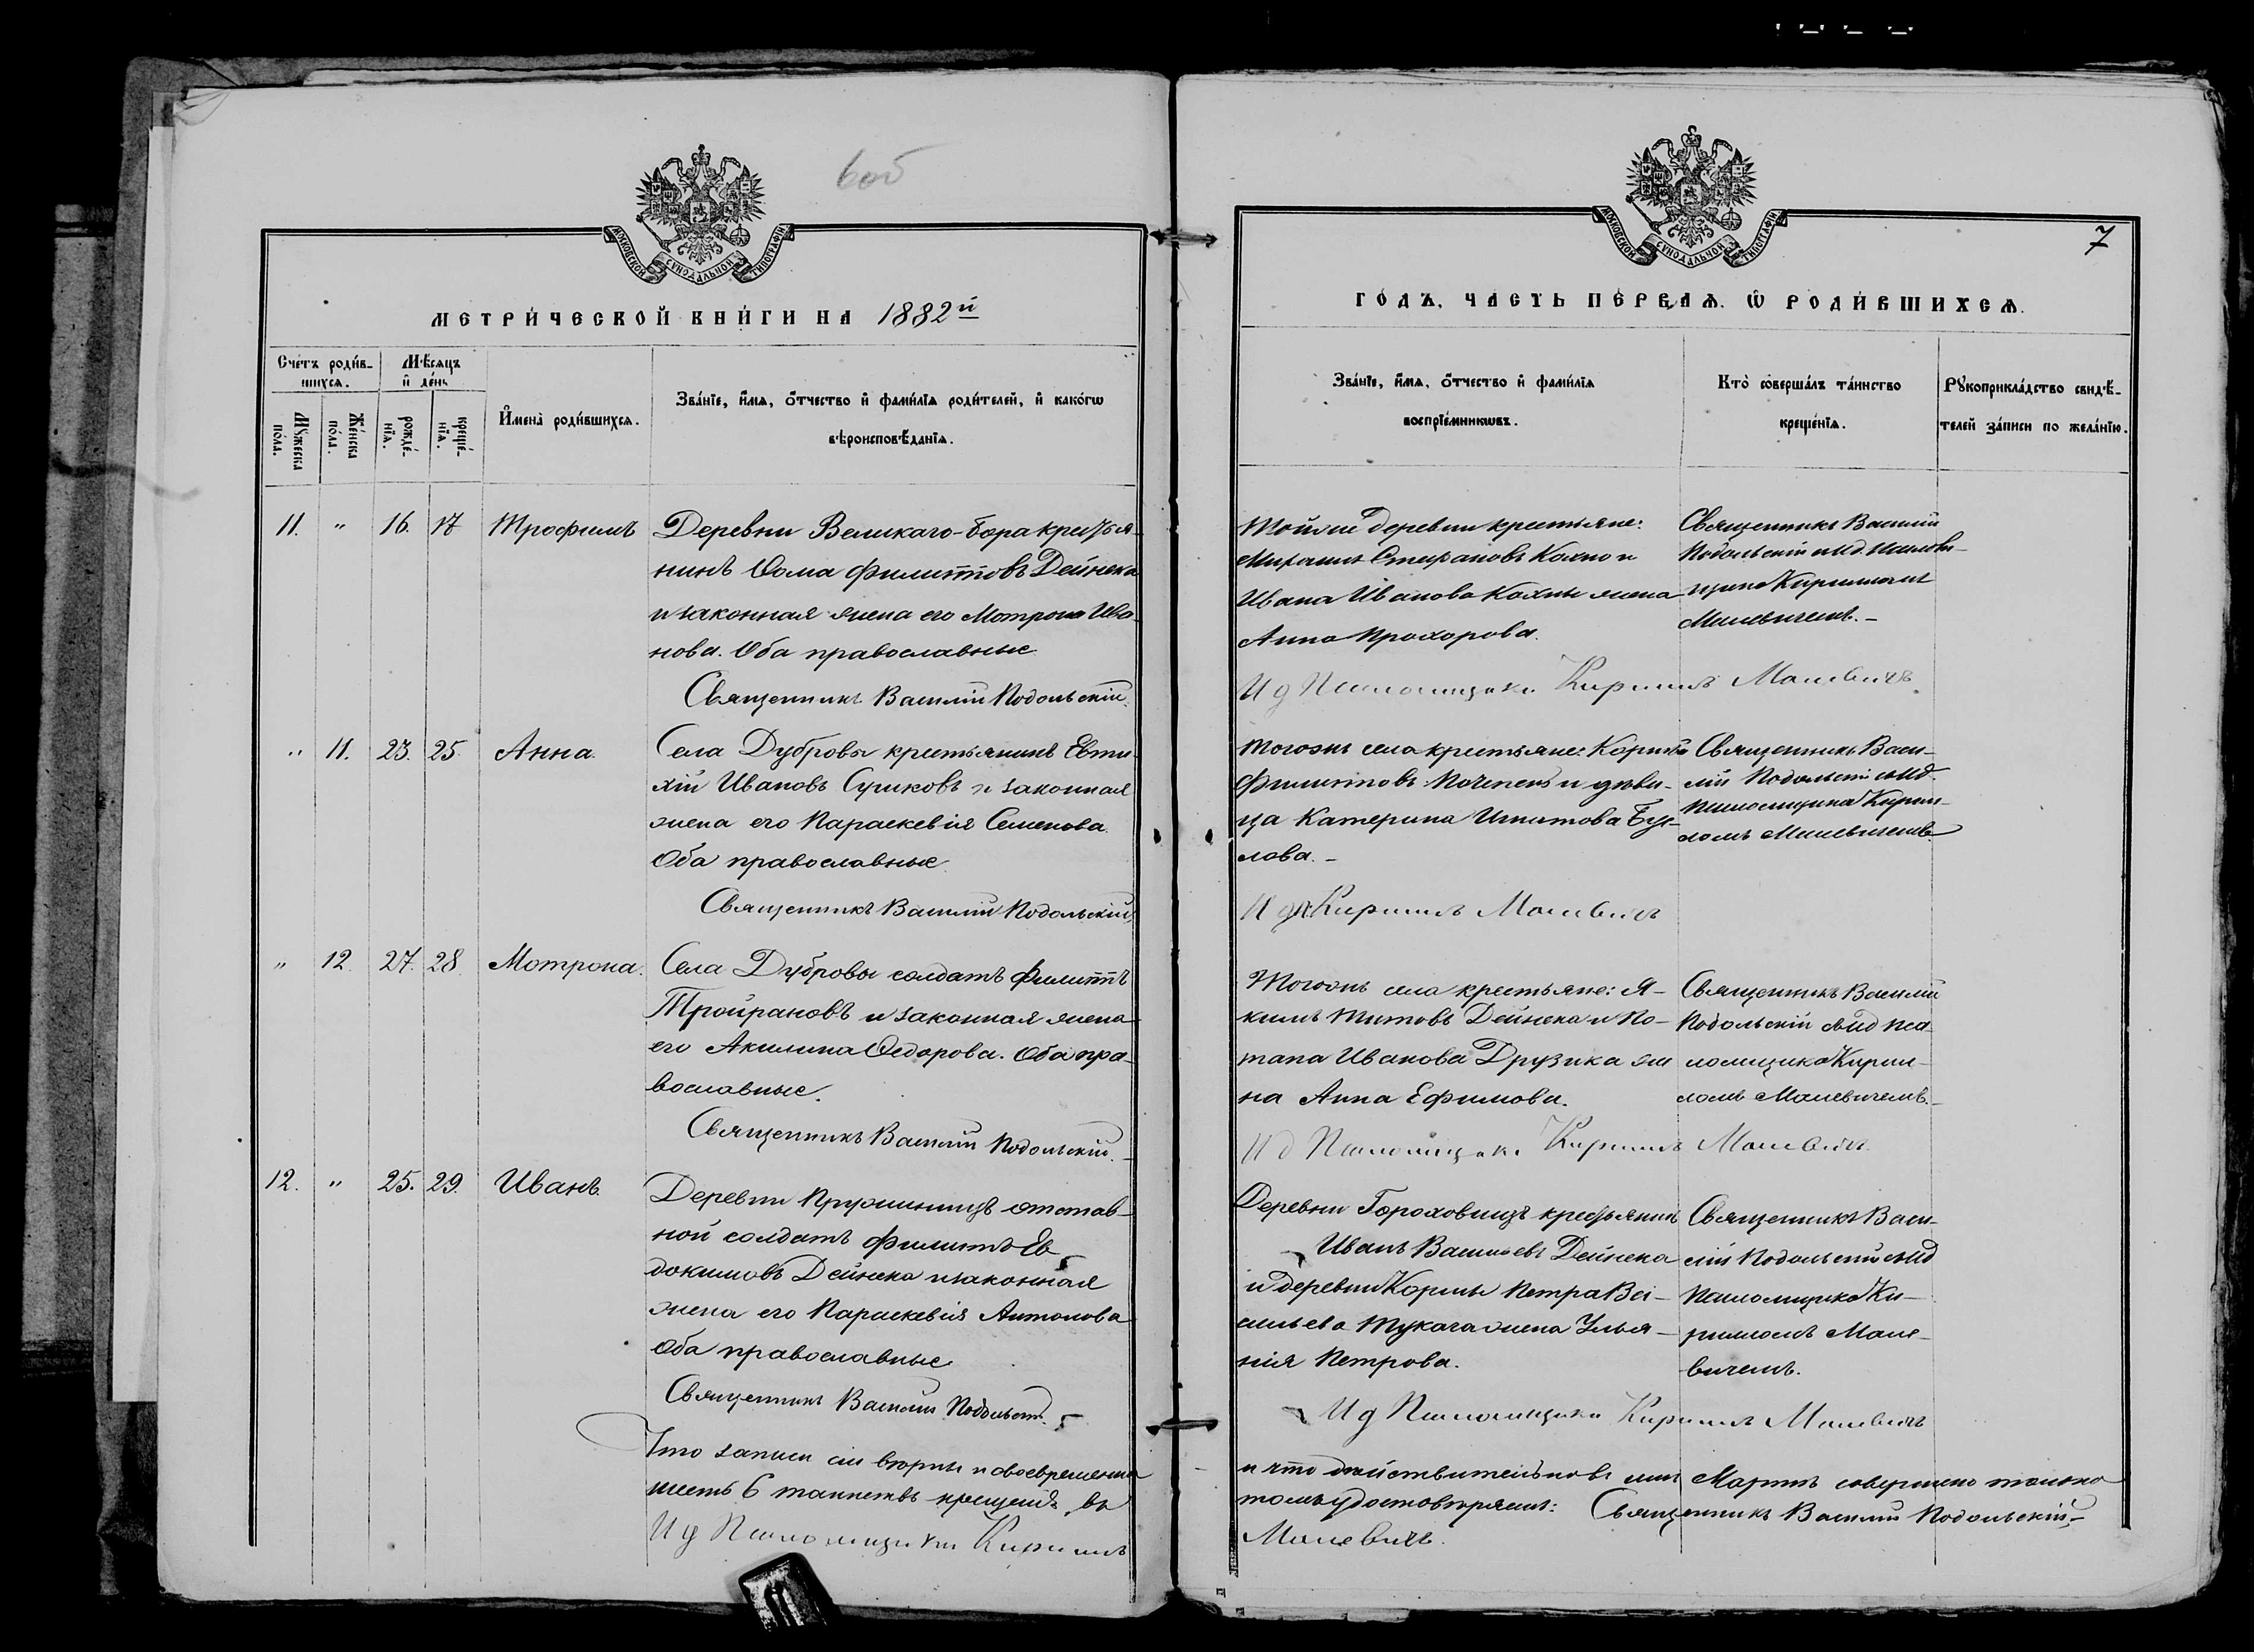 6об
МОСКОВСКОЙ СѴНОДАЛЬНОЙ ТИПОГРАФІИ
МЕТРИ́ЧЕСКОЙ КНИ́ГИ НА 1882й
Сче́тъ роди́в-
шихся.
Мѣ́сяцъ
и҆ де́нь
Мꙋ́жеска
по́ла.
Же́нска
по́ла.
рожде́-
нїя.
креще́-
нїя.
И҆мена̀ роди́вшихся.
Зва́нїе, и҆́мя, ѻ҆́тчество и҆ фами́лїя роди́телей, и҆ како́гѡ
вѣроисповѣ́данїя.
11. " 16. 17 Трофимъ
Деревни Великаго-бора крестья-
нинъ Ѳома Филипповъ Дейнека
и законная жена его Мотрона Ива-
нова. Оба православные
Священникъ Василій Подольскій.
" 11. 23. 25. Анна.
Села Дубровы крестьянинъ Евти-
хій Ивановъ Сушковъ и законная
жена его Параскевія Семенова.
Оба православные
Священникъ Василій Подольскій
" 12. 27. 28. Мотрона.
Села Дубровы солдатъ Филиппъ
и законная жена
его Акилина Ѳедорова. Оба пра-
вославные.
Священникъ Василій Подольскій.
12. " 25. 29. Иванъ.
Деревни отстав-
ной солдатъ Филиппъ Ев-
докимовъ Дейнека и законная
жена его Параскевія Антонова
Оба православные
Священникъ Василій Подольскій.
Что записи сіи вѣрны и своевременны
шесть 6 таинствъ крещенія, въ
И д Псаломщика Кириллъ
7
МОСКОВСКОЙ СѴНОДАЛЬНОЙ ТИПОГРАФІИ
ГО́ДЪ, ЧА́СТЬ ПЕ́РВАѦ. Ѽ РОДИ́ВШИХСѦ.
Зва́нїе, и҆́мя, ѻ҆́тчество и҆ фами́лїя
воспрїе́мникѡвъ.
Кто̀ соверша́лъ та́инство
креще́нїя.
Рꙋкоприкла́дство свидѣ́-
телей за́писи по жела́нїю.
Тойже деревни крестьяне:
Стефановъ Кохно и
Ивана Иванова Кохны жена
Анна Прохорова.
Священникъ Василій
Подольскій съ ид. псалом-
щика Кирилломъ
Малевичемъ. -
И д Псаломщика Кириллъ Малевичъ.
Тогожъ села крестьяне:
Филипповъ и дѣви-
ца Катерина Игнатова
лова. -
Священникъ Васи-
лій Подольскій съ ид.
псаломщика Кирил-
ломъ Малевичемъ
И дп. Кириллъ Малевичъ
Тогожъ села крестьяне: Я-
кимъ Титовъ Дейнека и По-
тапа Иванова Друзика же-
на Анна Ефимова.
Священникъ Василій
Подольскій съ ид пса-
ломщика Кирил-
ломъ Малевичемъ. -
И д Псаломщика Кириллъ Малевичъ.
Деревни Гороховищъ крестьянинъ
Иванъ Васильевъ Дейнека
и деревни Кормы Петра Ва-
сильева Тукача жена Улья-
нія Петрова.
Священникъ Васи-
лій Подольскій съ ид
псаломщика Ки-
рилломъ Мале-
вичемъ.
И д Псаломщика Кириллъ Малевичъ
и что дѣйствительно въ семъ Мартѣ совершено только
томъ удостовѣряемъ: Священникъ Василій Подольскій
Малевичъ.